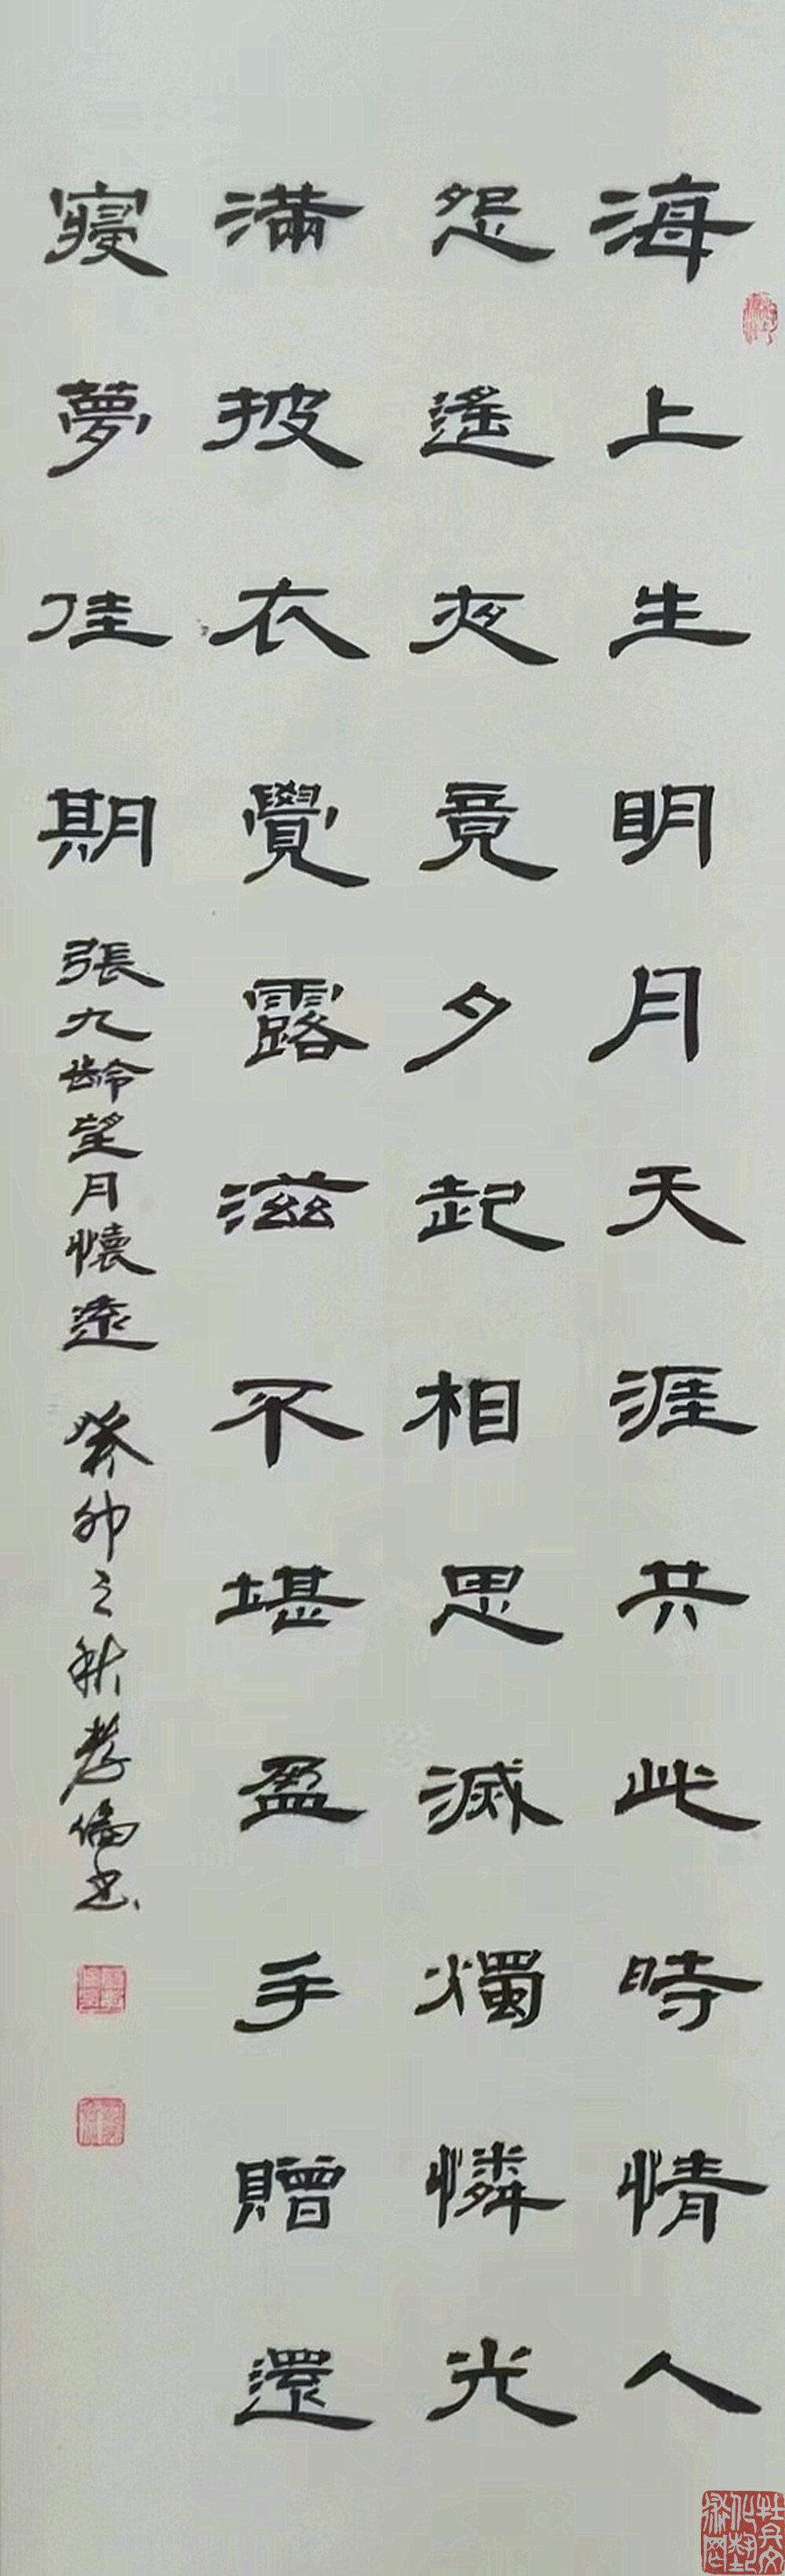 海上生明月天涯共此時情人
怨遙夜竟夕起相思滅燭憐光
滿披衣覺露滋不堪盈手贈還
寢夢佳期 張九齡望月懷遠 癸卯之秋孝倫書